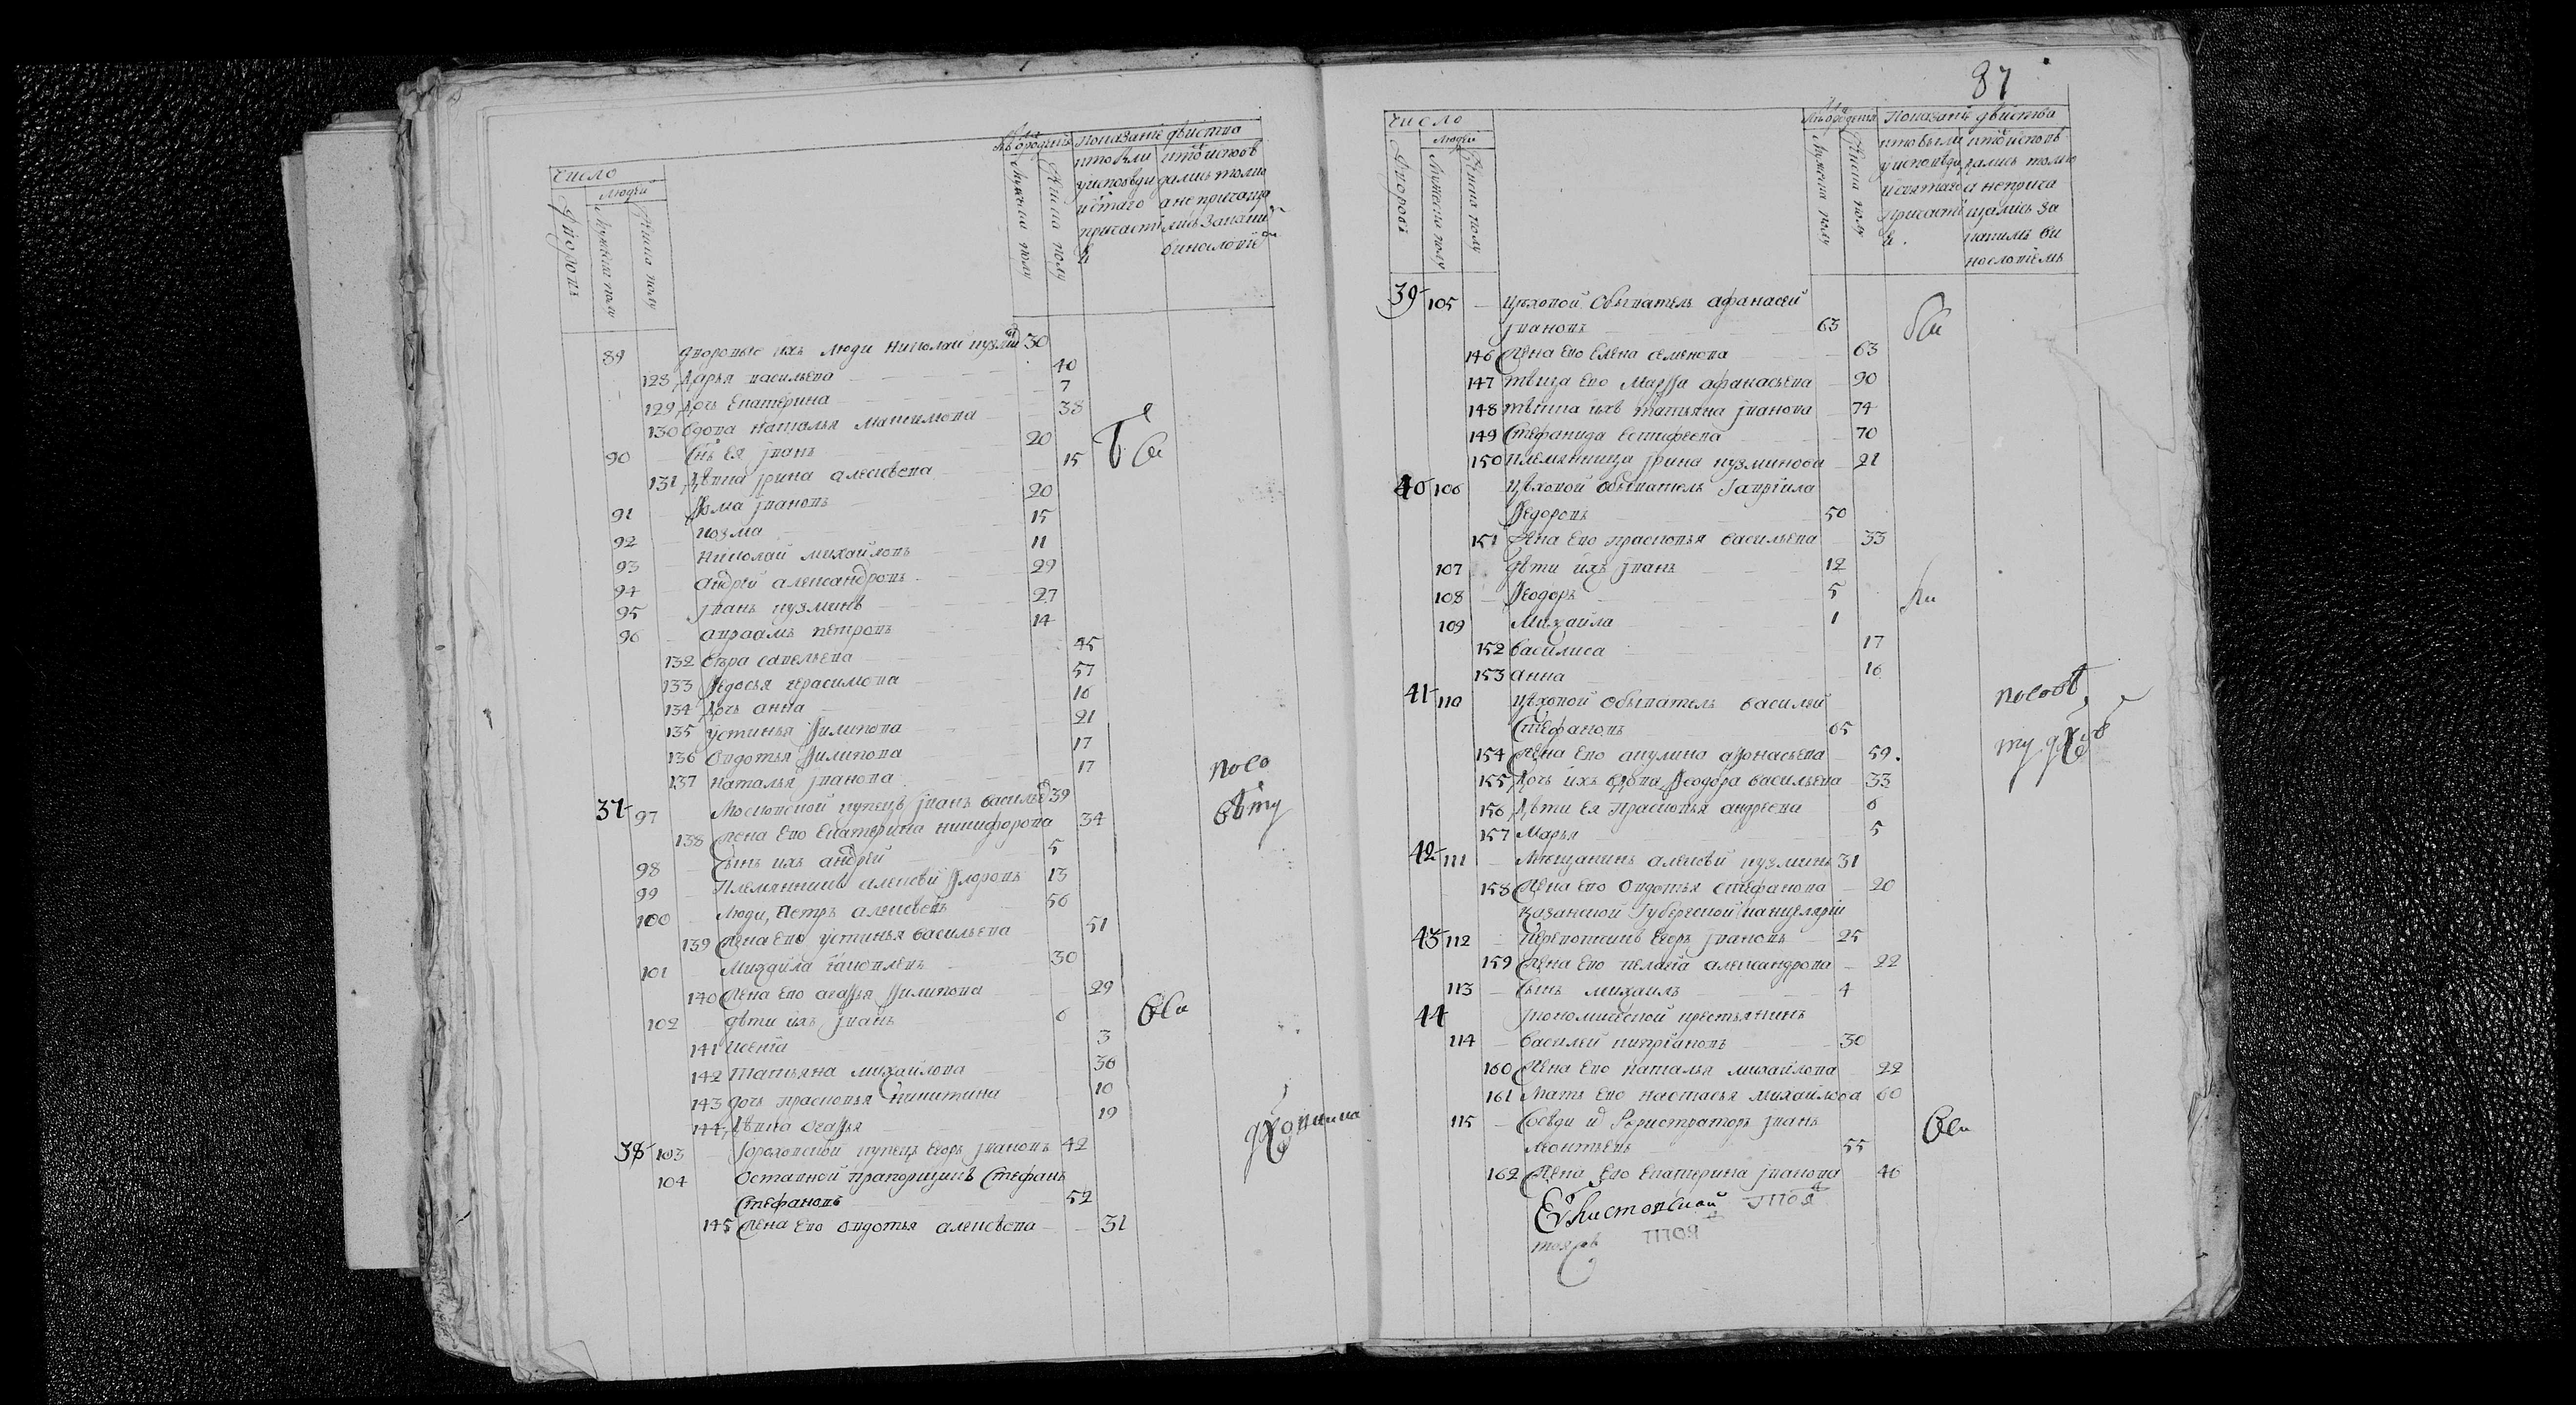 число
людей
дворовъ
мужеска полу
женска полу
лѣ ѿ рождѣнія
мужеска полу
женска полу
показаніе дѣйства
кто были у исповѣди и стаго причастія
кто исповѣдались токмо а не причащались
89 дворовые ихъ люди Николай кузмин 30
128 Дарья васильева 40
129 Дочь Екатерина 7
130 Вдова наталья максимова 38
90 Снъ ея јванъ 20
131 Дѣвка јрина алексѣева 15
91 Фома јвановъ 20
92 козма 15
93 николай михайловъ 11
94 андрей александровъ 29
95 јванъ кузминъ 27
96 авраамъ петровъ 14
132 Вѣра савельева 45
133 Ѳедосья герасимова 57
134 Дочь анна 16
135 устинья Филипова 21
136 Овдотья Филипова 17
137 наталья јванова 17
37 97 Московской купецъ јванъ васильев 39
138 жена ево Екатерина никифорова 34
98 Сынъ ихъ андрей 5
99 Племянникъ алексѣй Ѳлоровъ 13
100 Люди, Петръ алексѣевъ 56
139 жена ево устинья васильева 51
101 Михайла яковлевъ 30
140 жена ево агаѳья Филипова 29
102 дѣти ихъ јванъ 6
141 Ксенія 3
142 Татьяна михайлова 36
143 дочь прасковья никитина 10
144 Дѣвка агаѳья 19
38 103 Гороховской купецъ егоръ јвановъ 42
104 Оставной прапорщикъ Стефанъ
Стефановъ 52
145 жена ево овдотья алексѣева 31
87
число
людей
дворовъ
мужеска полу
женска полу
лѣ ѿ рожденія
мужеска полу
женска полу
Показаніе дѣйства
кто были у исповѣди и святаго причастія
кто исповѣдались токмо а не причащались за какимъ винословіемъ
39 105 цеховой Обыватель афанасей
јвановъ 63
146 жена ево елена семенова 63
147 тѣща ево Марѳа афанасьева 90
148 тѣтка ихъ татьяна јванова 74
149 Стефанида евтифеева 70
150 племянница јрина кузминова 21
40 106 цѣховой обыватель Гавріила
Ѳедоровъ 50
151 жена ево прасковья васильева 33
107 дѣти ихъ јванъ 12
108 Ѳеодоръ 5
109 Михайла 1
152 василиса 17
153 анна 16
41 110 цѣховой обыватель василей
Стефановъ 65
154 жена ево акулина афонасьева 59
155 Дочь ихъ вдова Ѳеодора васильева 33
156 Дѣти ея прасковья андреева 6
157 Марья 5
42 111 Мещанинъ алексѣй кузминъ 31
158 жена ево овдотья стефанова 20
казанской Губернской канцеляріи
43 112 переписчикъ егоръ јвановъ 25
159 жена ево пелагія александрова 22
113 Сынъ михаилъ 4
44 јкономической крестьянинъ
114 василей кипріановъ 30
160 жена ево наталья михайлова 22
161 Мать ево настасья михайлова 60
115 Сосѣди Регистраторъ јванъ
леонтьевъ 55
162 жена ево екатерина јванова 46